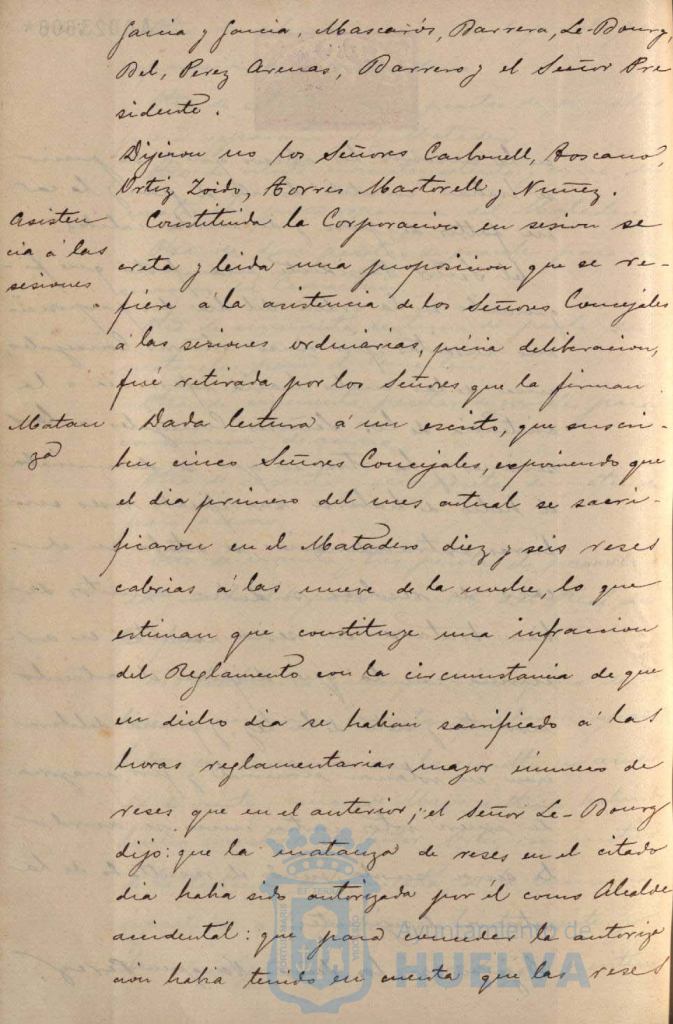 Garcia y Garcia, Mascarós, Barrera, Le-Bourg,
Bel, Perez Arenas, Barrero y el Señor Pre
sidente.
Dijeron no los Señores Carbonell, Toscano,
Ortiz Zoido, Torres Martorell y Nuñez.
Asisten
cia á las
sesiones.
Constituida la Corporacion en sesion se
creta y leida una proposicion que se re-
fiere á la asistencia de los Señores Concejales
á las sesiones ordinarias, prévia deliberacion,
fué retirada por los Señores que la firman.
Matan
za
Dada lectura á un escrito, que suscri-
ben cinco Señores Concejales, exponiendo que
el dia primero del mes actual se sacri-
ficaron en el Matadero diez y seis reses
cabrias á las nueve de la noche, lo que
estiman que constituye una infraccion
del Reglamento con la circunstancia de que
en dicho dia se habian sacrificado á las
horas reglamentarias mayor número de
reses que en el anterior; el Señor Le-Bourg
dijo: que la matanza de reses en el citado
dia habia sido autorizada por él como Alcalde
accidental: que para conceder la autoriza
cion habia tenido en cuenta que las reses
Ayuntamiento de
HUELVA